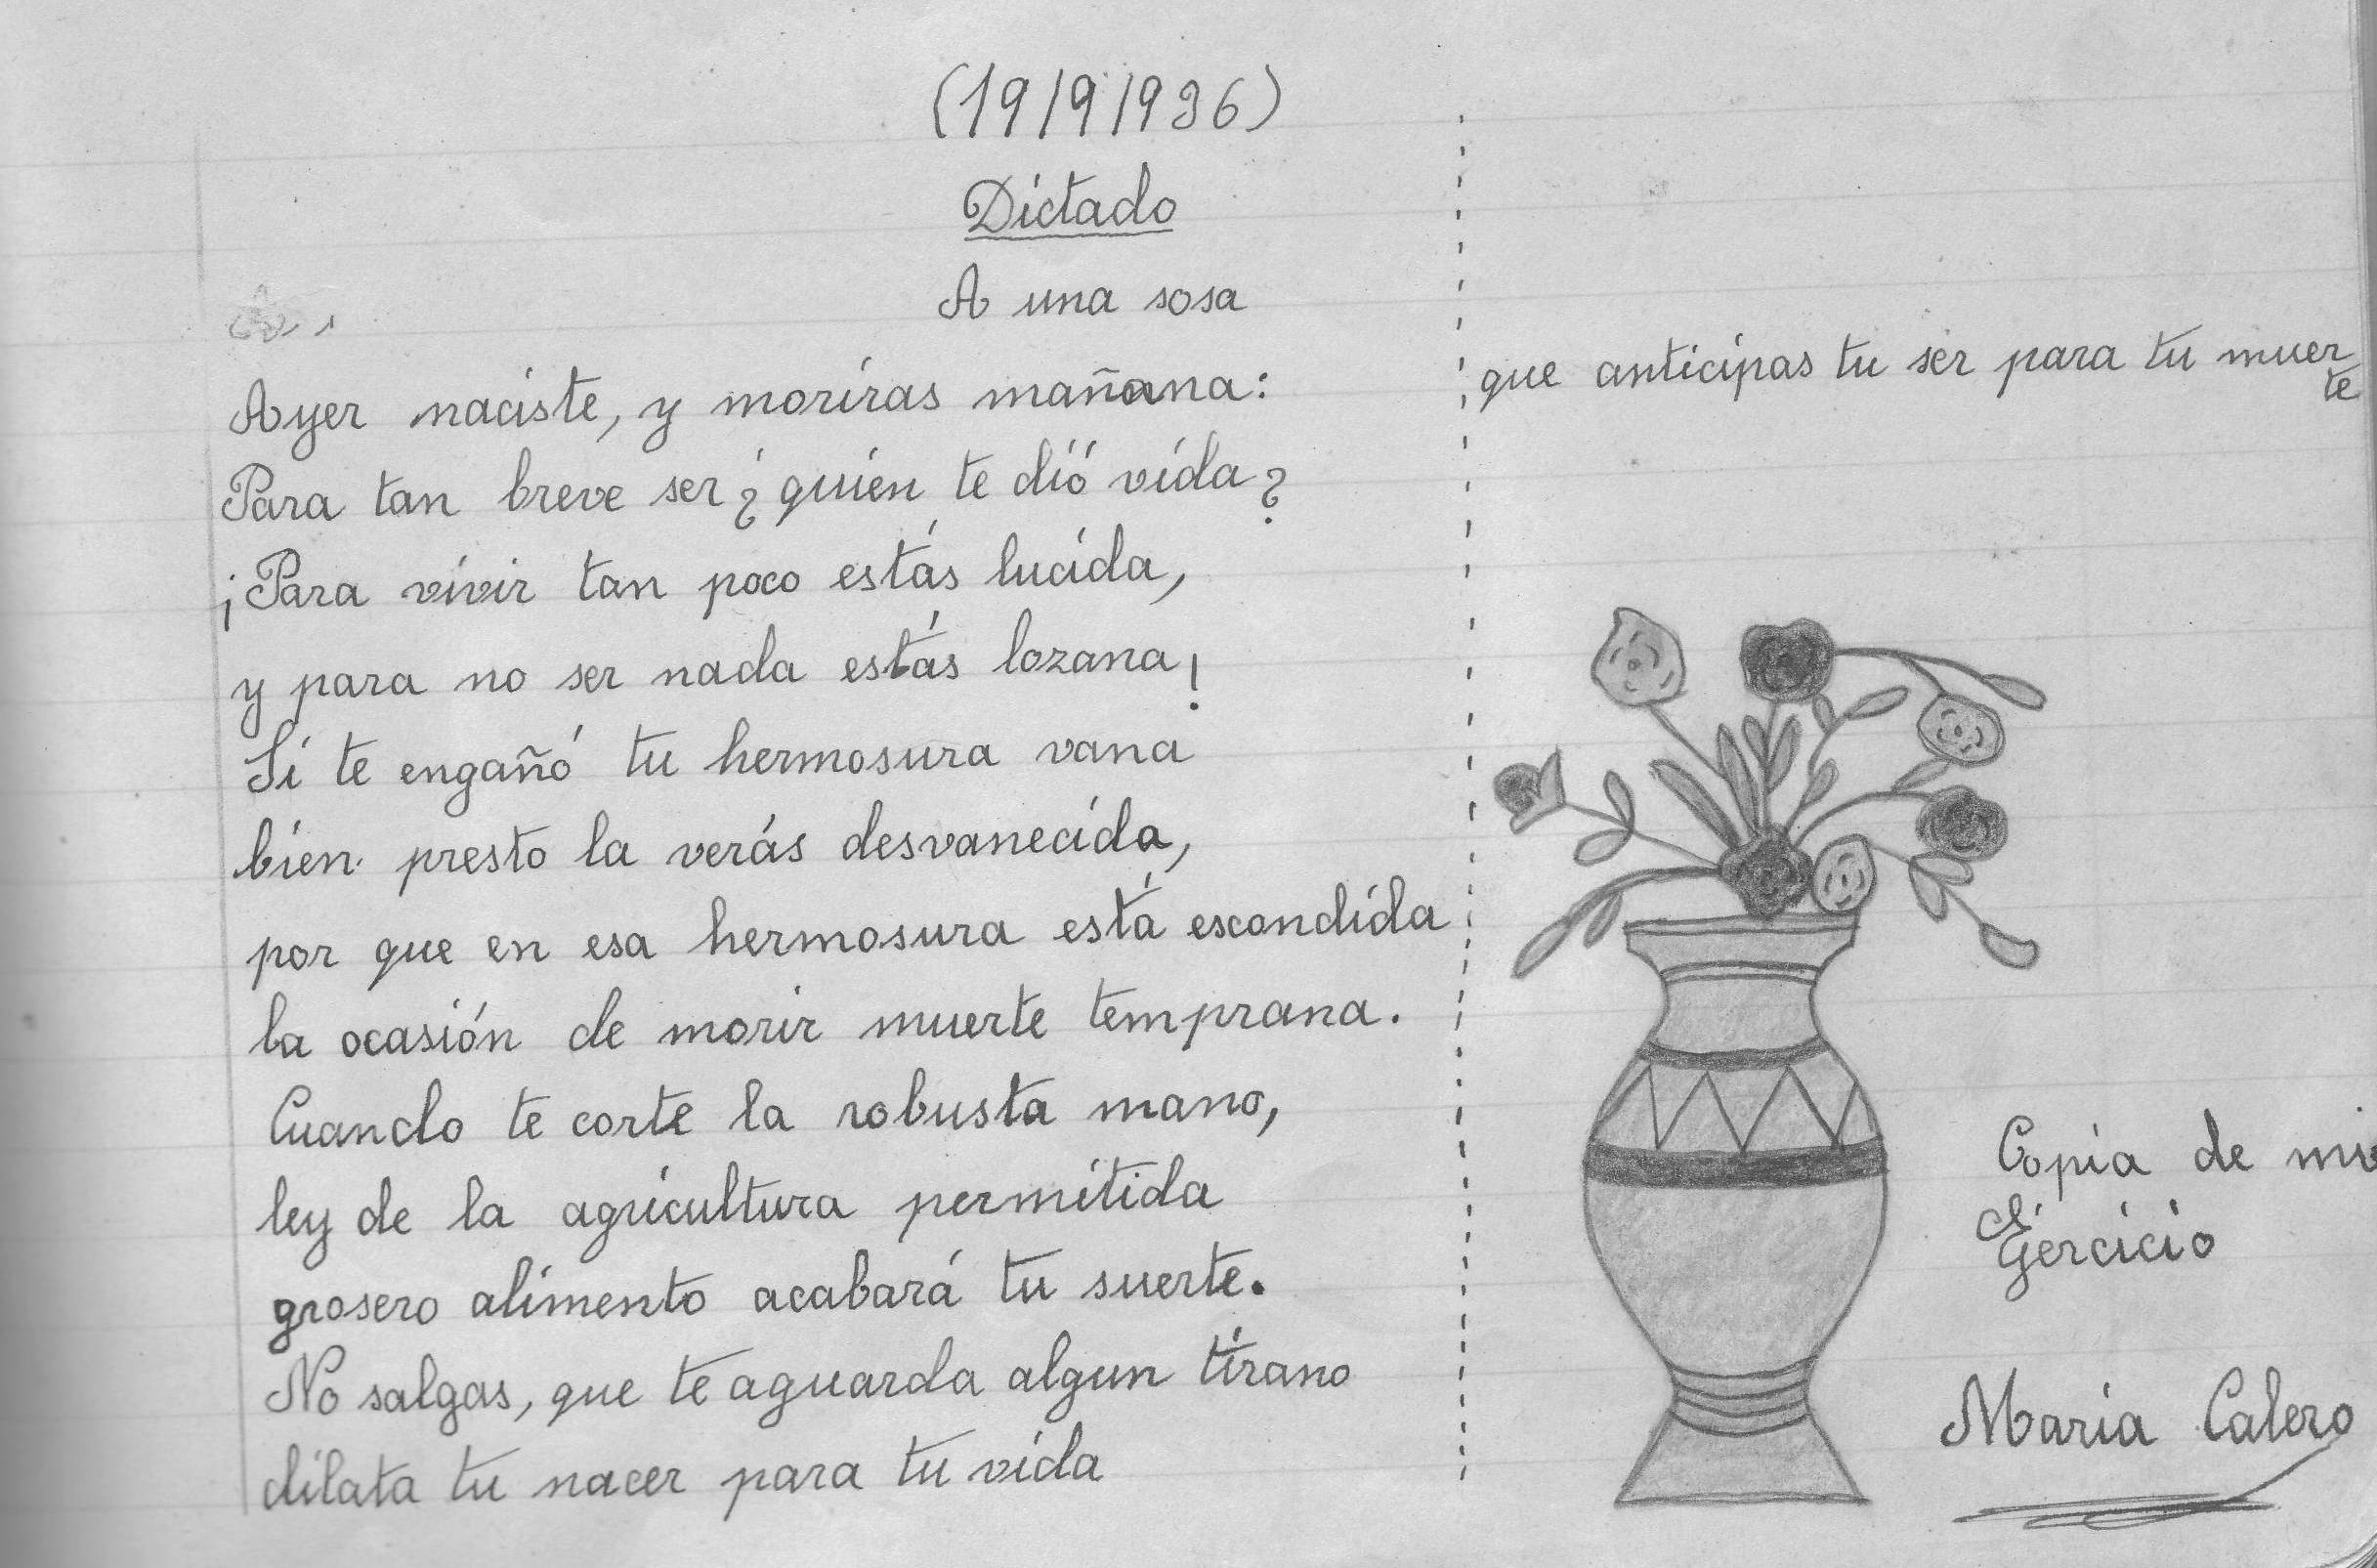 (19/9/936)
Dictado
A una sosa
Ayer naciste, y moriras mañana:
Para tan breve ser ¿quién te dió vida?
¡Para vivir tan poco estás lucida,
y para no ser nada estás lozana!
Si te engañó tu hermosura vana
bien presto la verás desvanecida,
por que en esa hermosura está escondida
la ocasión de morir muerte temprana.
Cuando te corte la robusta mano,
ley de la agricultura permitida
grosero alimento acabará tu suerte.
No salgas, que te aguarda algun tirano
dilata tu nacer para tu vida
que anticipas tu ser para tu muer
te
Copia de mi
Ejercicio
Maria Calero